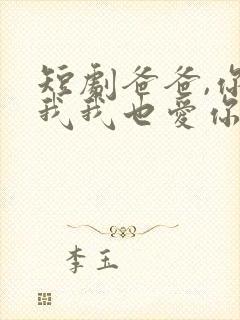 短劇爸爸,你
我我也愛你
李玉